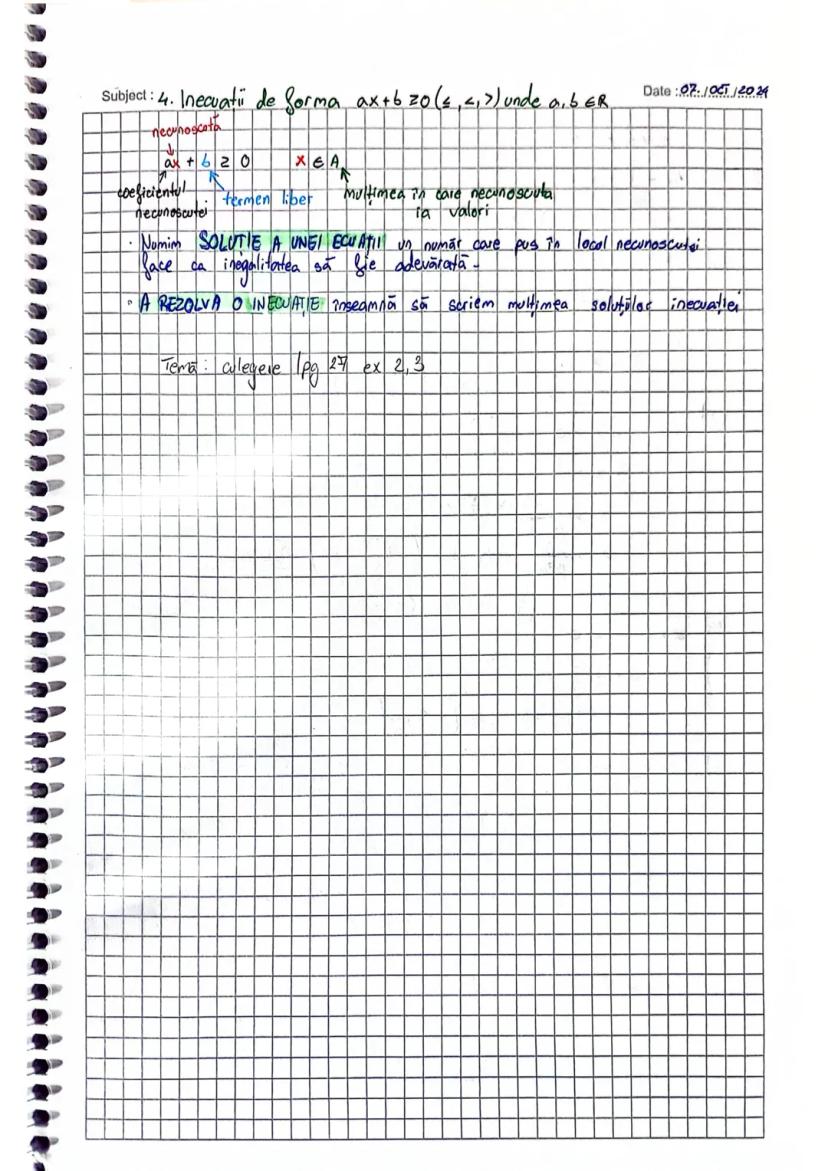 Subject : 4. Inecuații de forma ax+b ≥0 (≤, <, >) unde a, b ∈ R
Date : 07. / OCT / 2024
necunoscută
ax + b ≥ 0 x ∈ A
coeficientul termen liber mulțimea în care necunoscuta
necunoscutei ia valori
· Numim SOLUȚIE A UNEI ECUAȚII un număr care pus în locul necunoscutei
face ca inegalitatea să fie adevărată.
· A REZOLVA O INECUAȚIE înseamnă să scriem mulțimea soluțiilor inecuației
Temă : culegere /pg 27 ex 2,3